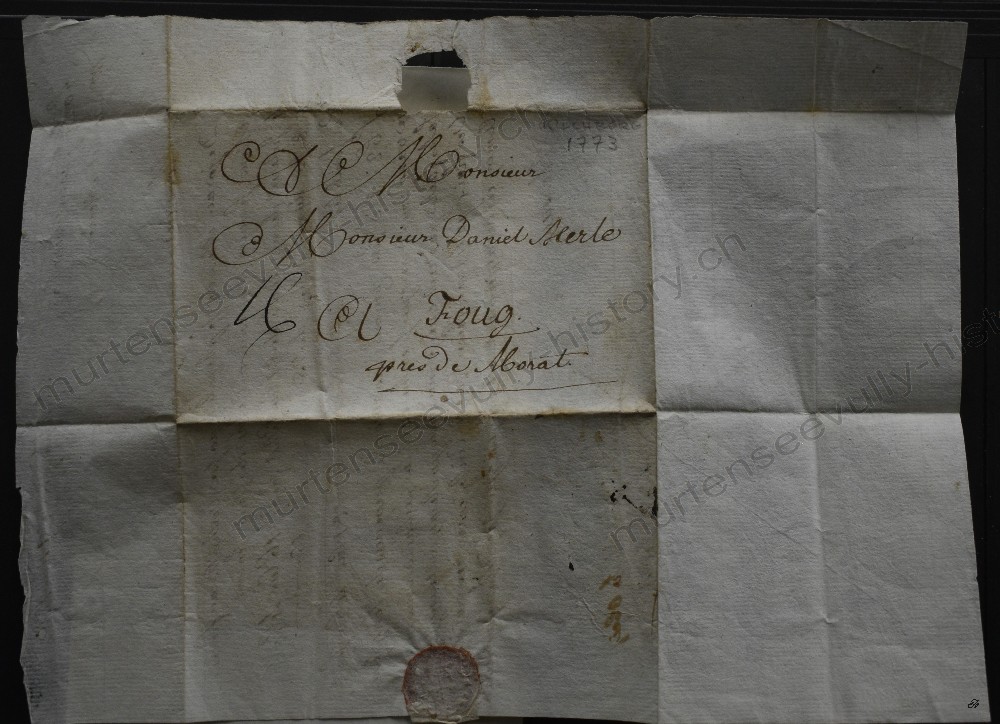 1773
A Monsieur
Monsieur Daniel Merle
à Foug.
près de Morat.
murtenseevully-history.ch
murtenseevully-history.ch
murtenseevully-history.ch
murtenseevully-history.ch